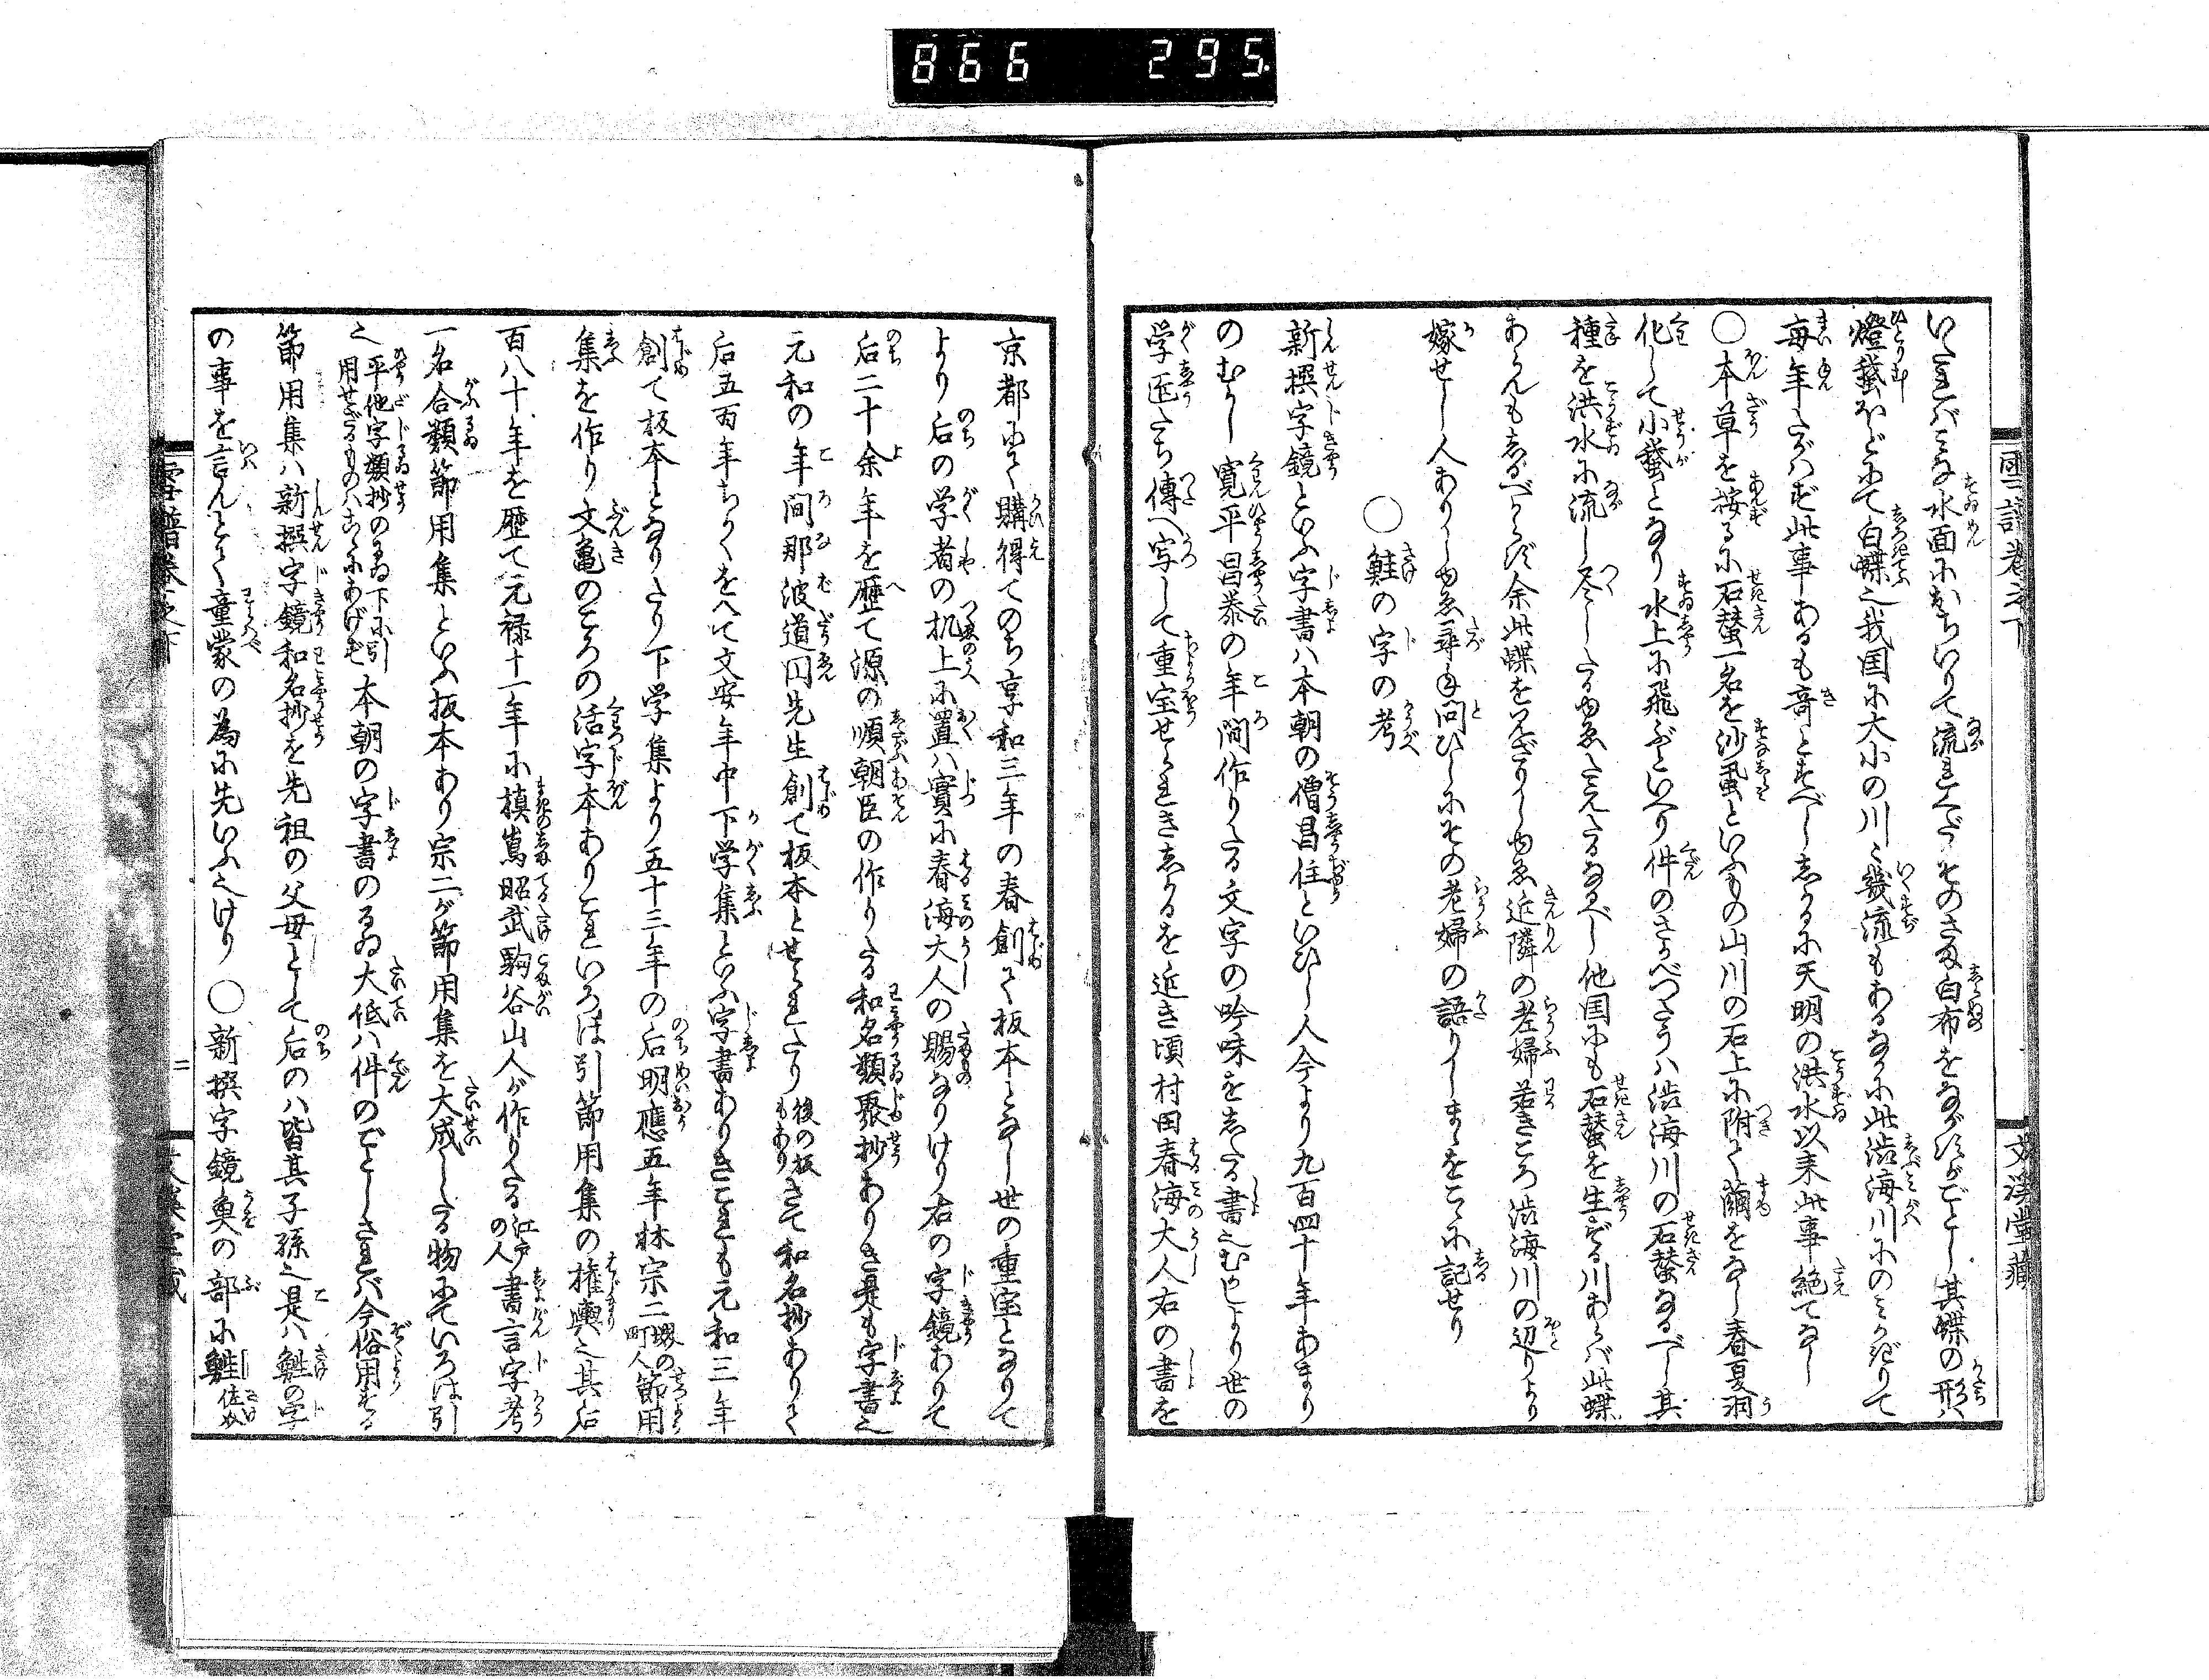 866 295.
雪譜巻之下
文溪堂藏
いたればみな水面におちいりて流れくだるそのさま白布をながすがごとし其蝶の形ハ
燈蛾ほどにて白蝶也我国に大小の川々幾流もあるなかに此渋海川にのミかぎりて
毎年たがハず此事あるも奇とすべししかるに天明の洪水以来此事絶てなし
○本草を按るに石蚕一名を沙虱といふもの山川の石上に附て繭をなし春夏羽
化して小蛾となり水上に飛ぶといへり件のさかべつたうハ渋海川の石蚕なるべし其
種を洪水に流し尽したるゆゑたえたるなるべし他国にも石蚕を生ずる川あらバ此蝶
あらんもしるべからず余此蝶を見ざりしゆゑ近隣の老婦若きころ渋海川の辺りより
嫁せし人ありしゆゑ尋ね問ひしにその老婦の語りしまゝをこゝに記せり
○鮏の字の考
新撰字鏡といふ字書ハ本朝の僧昌住といひし人今より九百四十年あまり
のむかし寛平昌泰の年間作りたる文字の吟味をしたる書也むかしより世の
学匠たち傳へ写して重宝せられきしかるを近き頃村田春海大人右の書を
京都にて購得てのち享和三年の春創て板本となし世の重宝となりて
より后の学者の机上に置ハ實に春海大人の賜なりけり右の字鏡ありて
后二十余年を歴て源の順朝臣の作りたる和名類聚抄ありき是も字書也
元和の年間那波道円先生創て板本とせられたり後の板もありさて和名抄ありて
后五百年ちかくをへて文安年中下学集といふ字書ありきこれも元和三年
創て板本となりたり下学集より五十三年の后明應五年林宗二堺の町人節用
集を作り文亀のころの活字本ありこれいろは引節用集の権輿也其后
百八十年を歴て元禄十一年に槙嶌昭武駒谷山人が作りたる江戸の人書言字考
一名合類節用集といふ板本あり宗二が節用集を大成したる物にていろは引
也平他字類抄のるゐ下に引用せざるものハこゝにあげず本朝の字書のるゐ大低ハ件のごとしされバ今俗用する
節用集ハ新撰字鏡和名抄を先祖の父母として后のハ皆其子孫也是ハ鮏の字
の事を言んとて童蒙の為に先いふ也けり○新撰字鏡魚の部に鮏佐介
雪譜巻之下
二
文溪堂藏